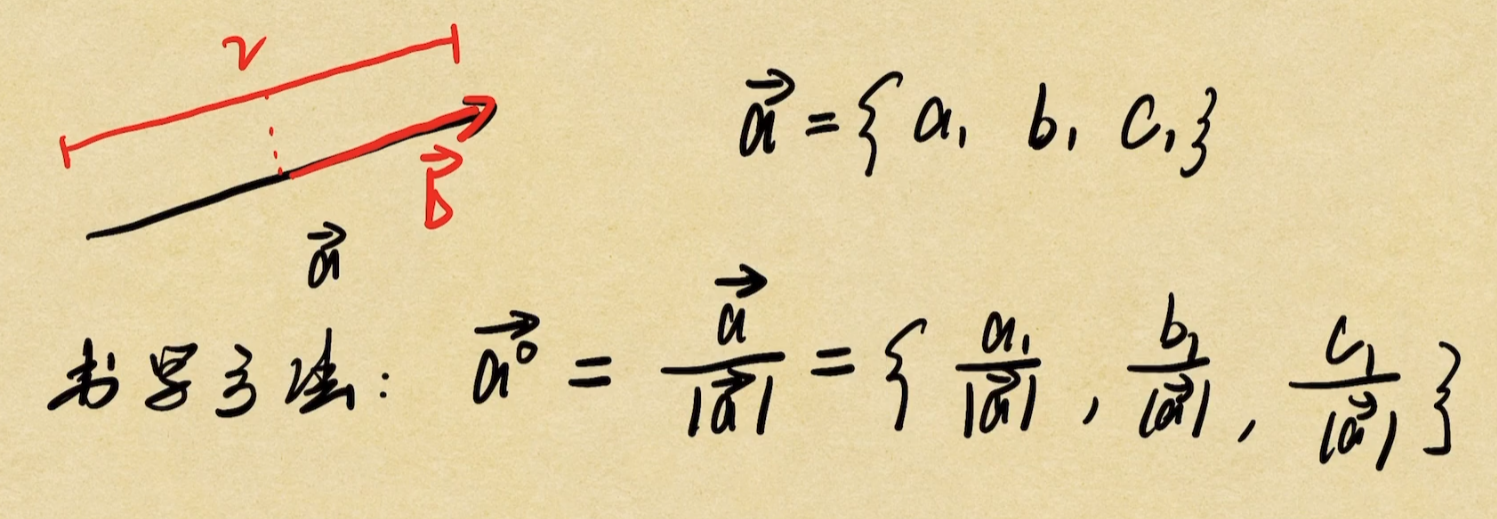 2
$\vec{a} = \{ a_1 \quad b_1 \quad c_1 \}$
$\vec{b}$
$\vec{a}$
书写方法: $\vec{a^0} = \frac{\vec{a}}{|\vec{a}|} = \{ \frac{a_1}{|\vec{a}|}, \frac{b_1}{|\vec{a}|}, \frac{c_1}{|\vec{a}|} \}$